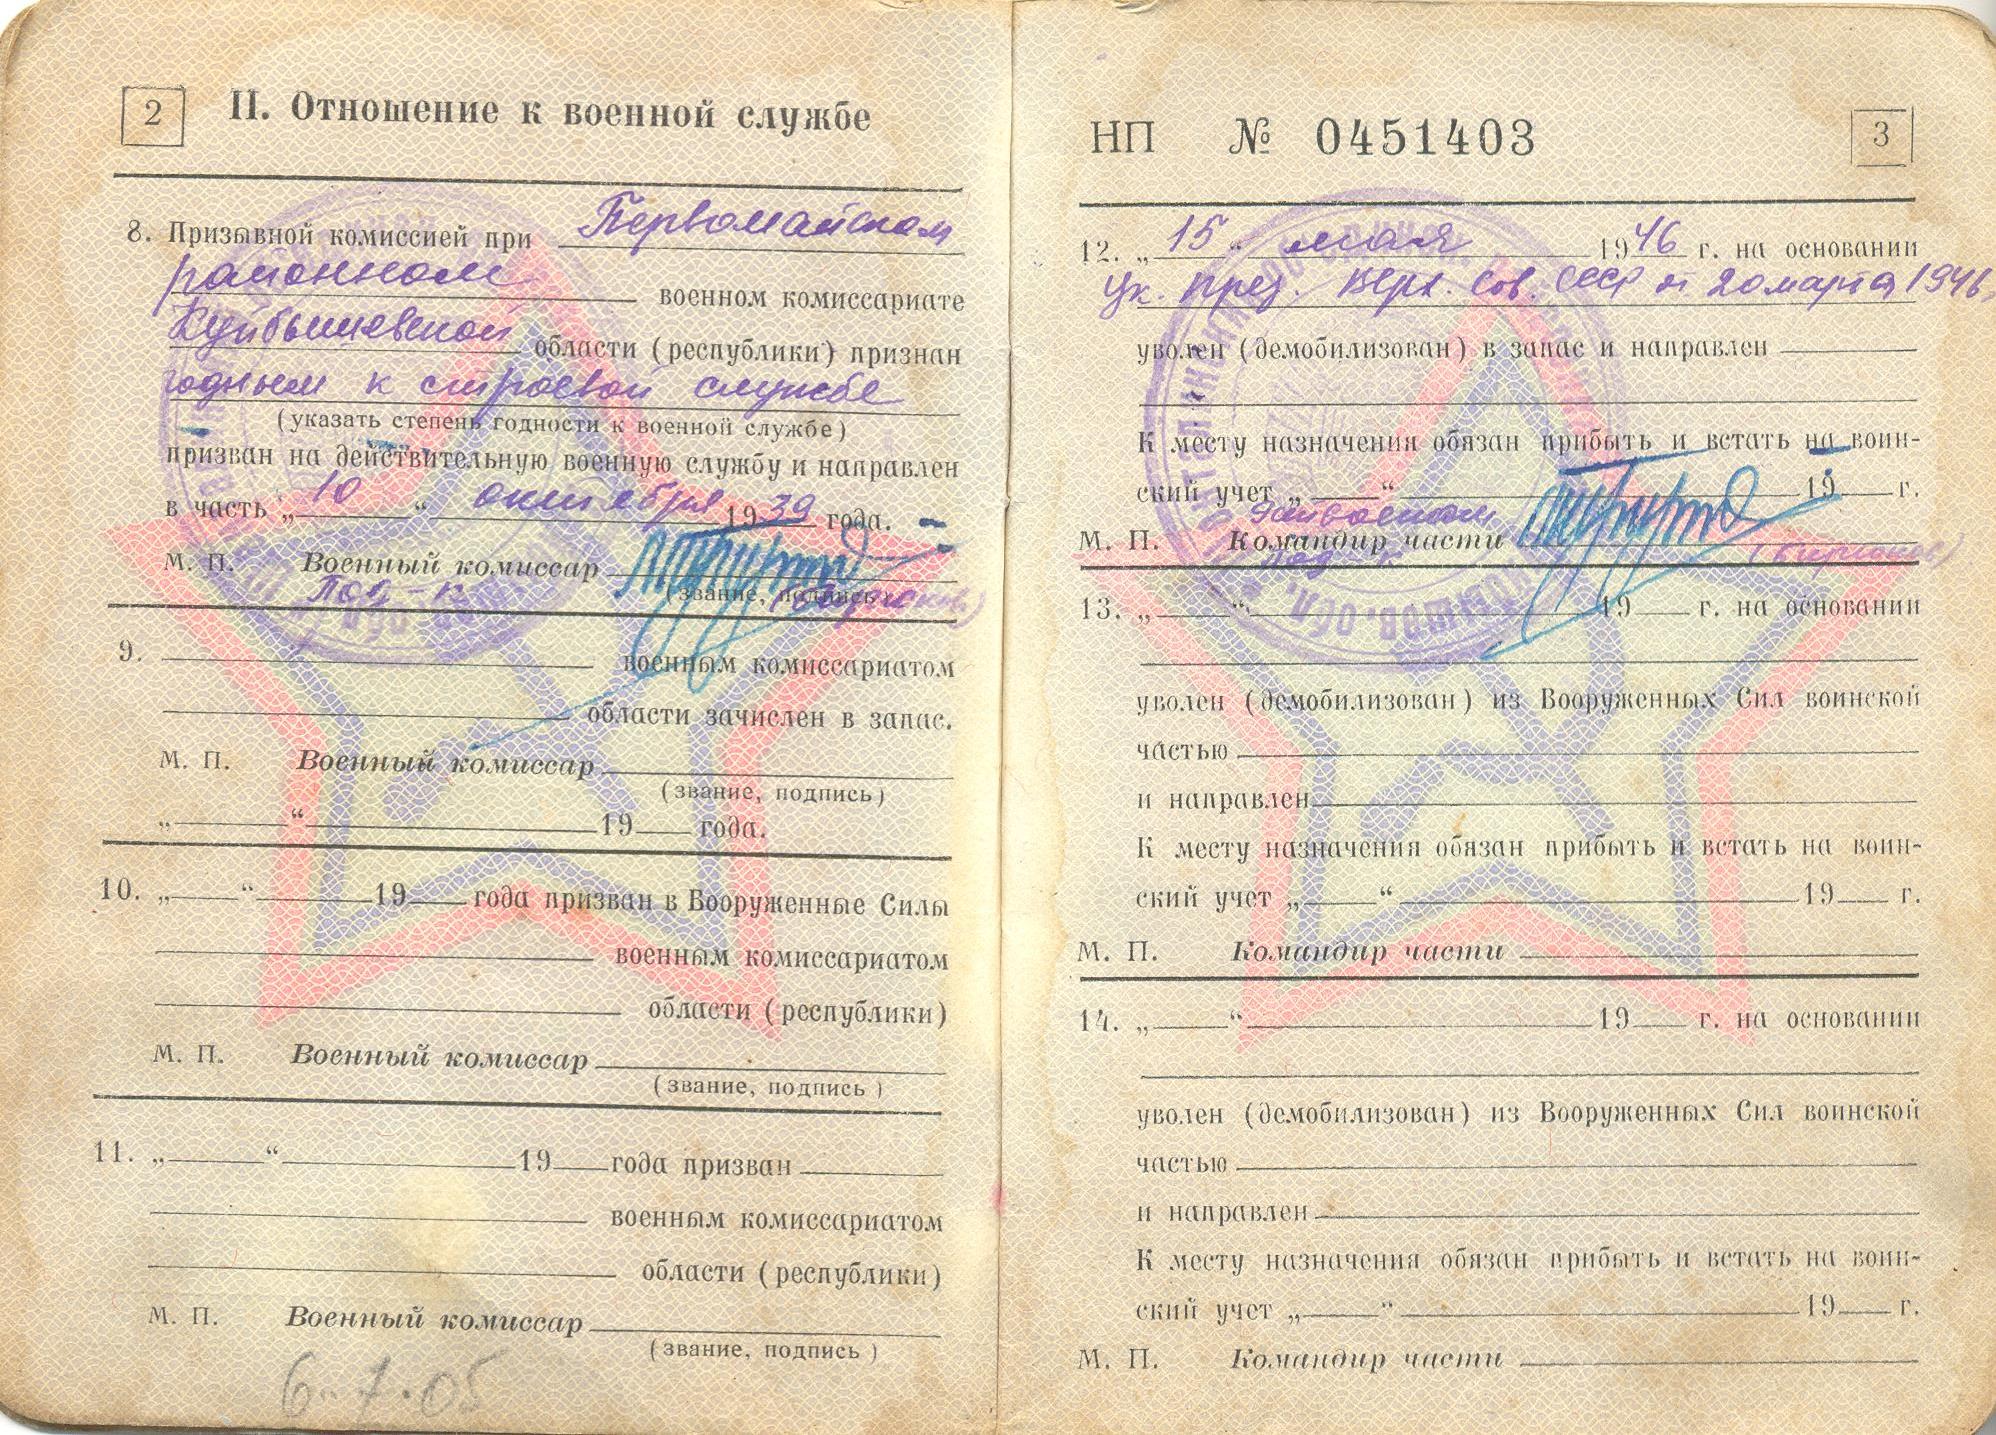 2
II. Отношение к военной службе
8. Призывной комиссией при Первомайском
районном военном комиссариате
Куйбышевской области (республики) признан
годным к строевой службе
(указать степень годности к военной службе)
призван на действительную военную службу и направлен
в часть „10“ октября 1939 года.
М. П. Военный комиссар
(звание, подпись)
Под-к
9. военным комиссариатом
области зачислен в запас.
М. П. Военный комиссар
(звание, подпись)
„ “ 19 года.
10. „ “ 19 года призван в Вооруженные Силы
военным комиссариатом
области (республики)
М. П. Военный комиссар
(звание, подпись)
11. „ “ 19 года призван
военным комиссариатом
области (республики)
М. П. Военный комиссар
(звание, подпись)
6.7.05
НП № 0451403
3
12. „15“ мая 1946 г. на основании
Ук. През. Верх. Сов. СССР от 20 марта 1946
уволен (демобилизован) в запас и направлен
К месту назначения обязан прибыть и встать на воин-
ский учет „ “ 19 г.
Райвоенком
М. П. Командир части
13. „ “ 19 г. на основании
уволен (демобилизован) из Вооруженных Сил воинской
частью
и направлен
К месту назначения обязан прибыть и встать на воин-
ский учет „ “ 19 г.
М. П. Командир части
14. „ “ 19 г. на основании
уволен (демобилизован) из Вооруженных Сил воинской
частью
и направлен
К месту назначения обязан прибыть и встать на воин-
ский учет „ “ 19 г.
М. П. Командир части